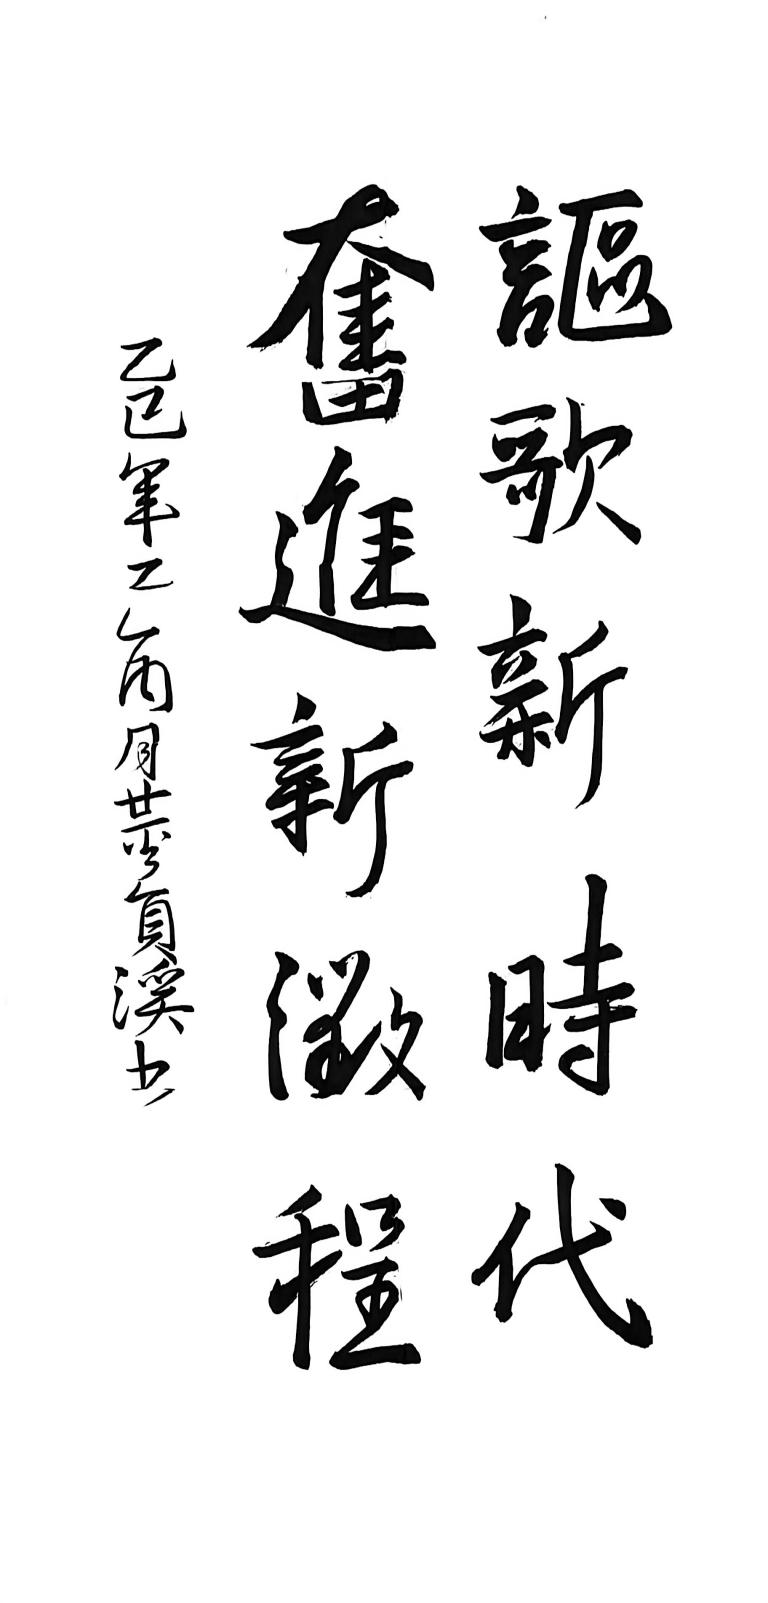 謳歌新時代
奮進新徵程
乙巳年乙丙月
貞溪書